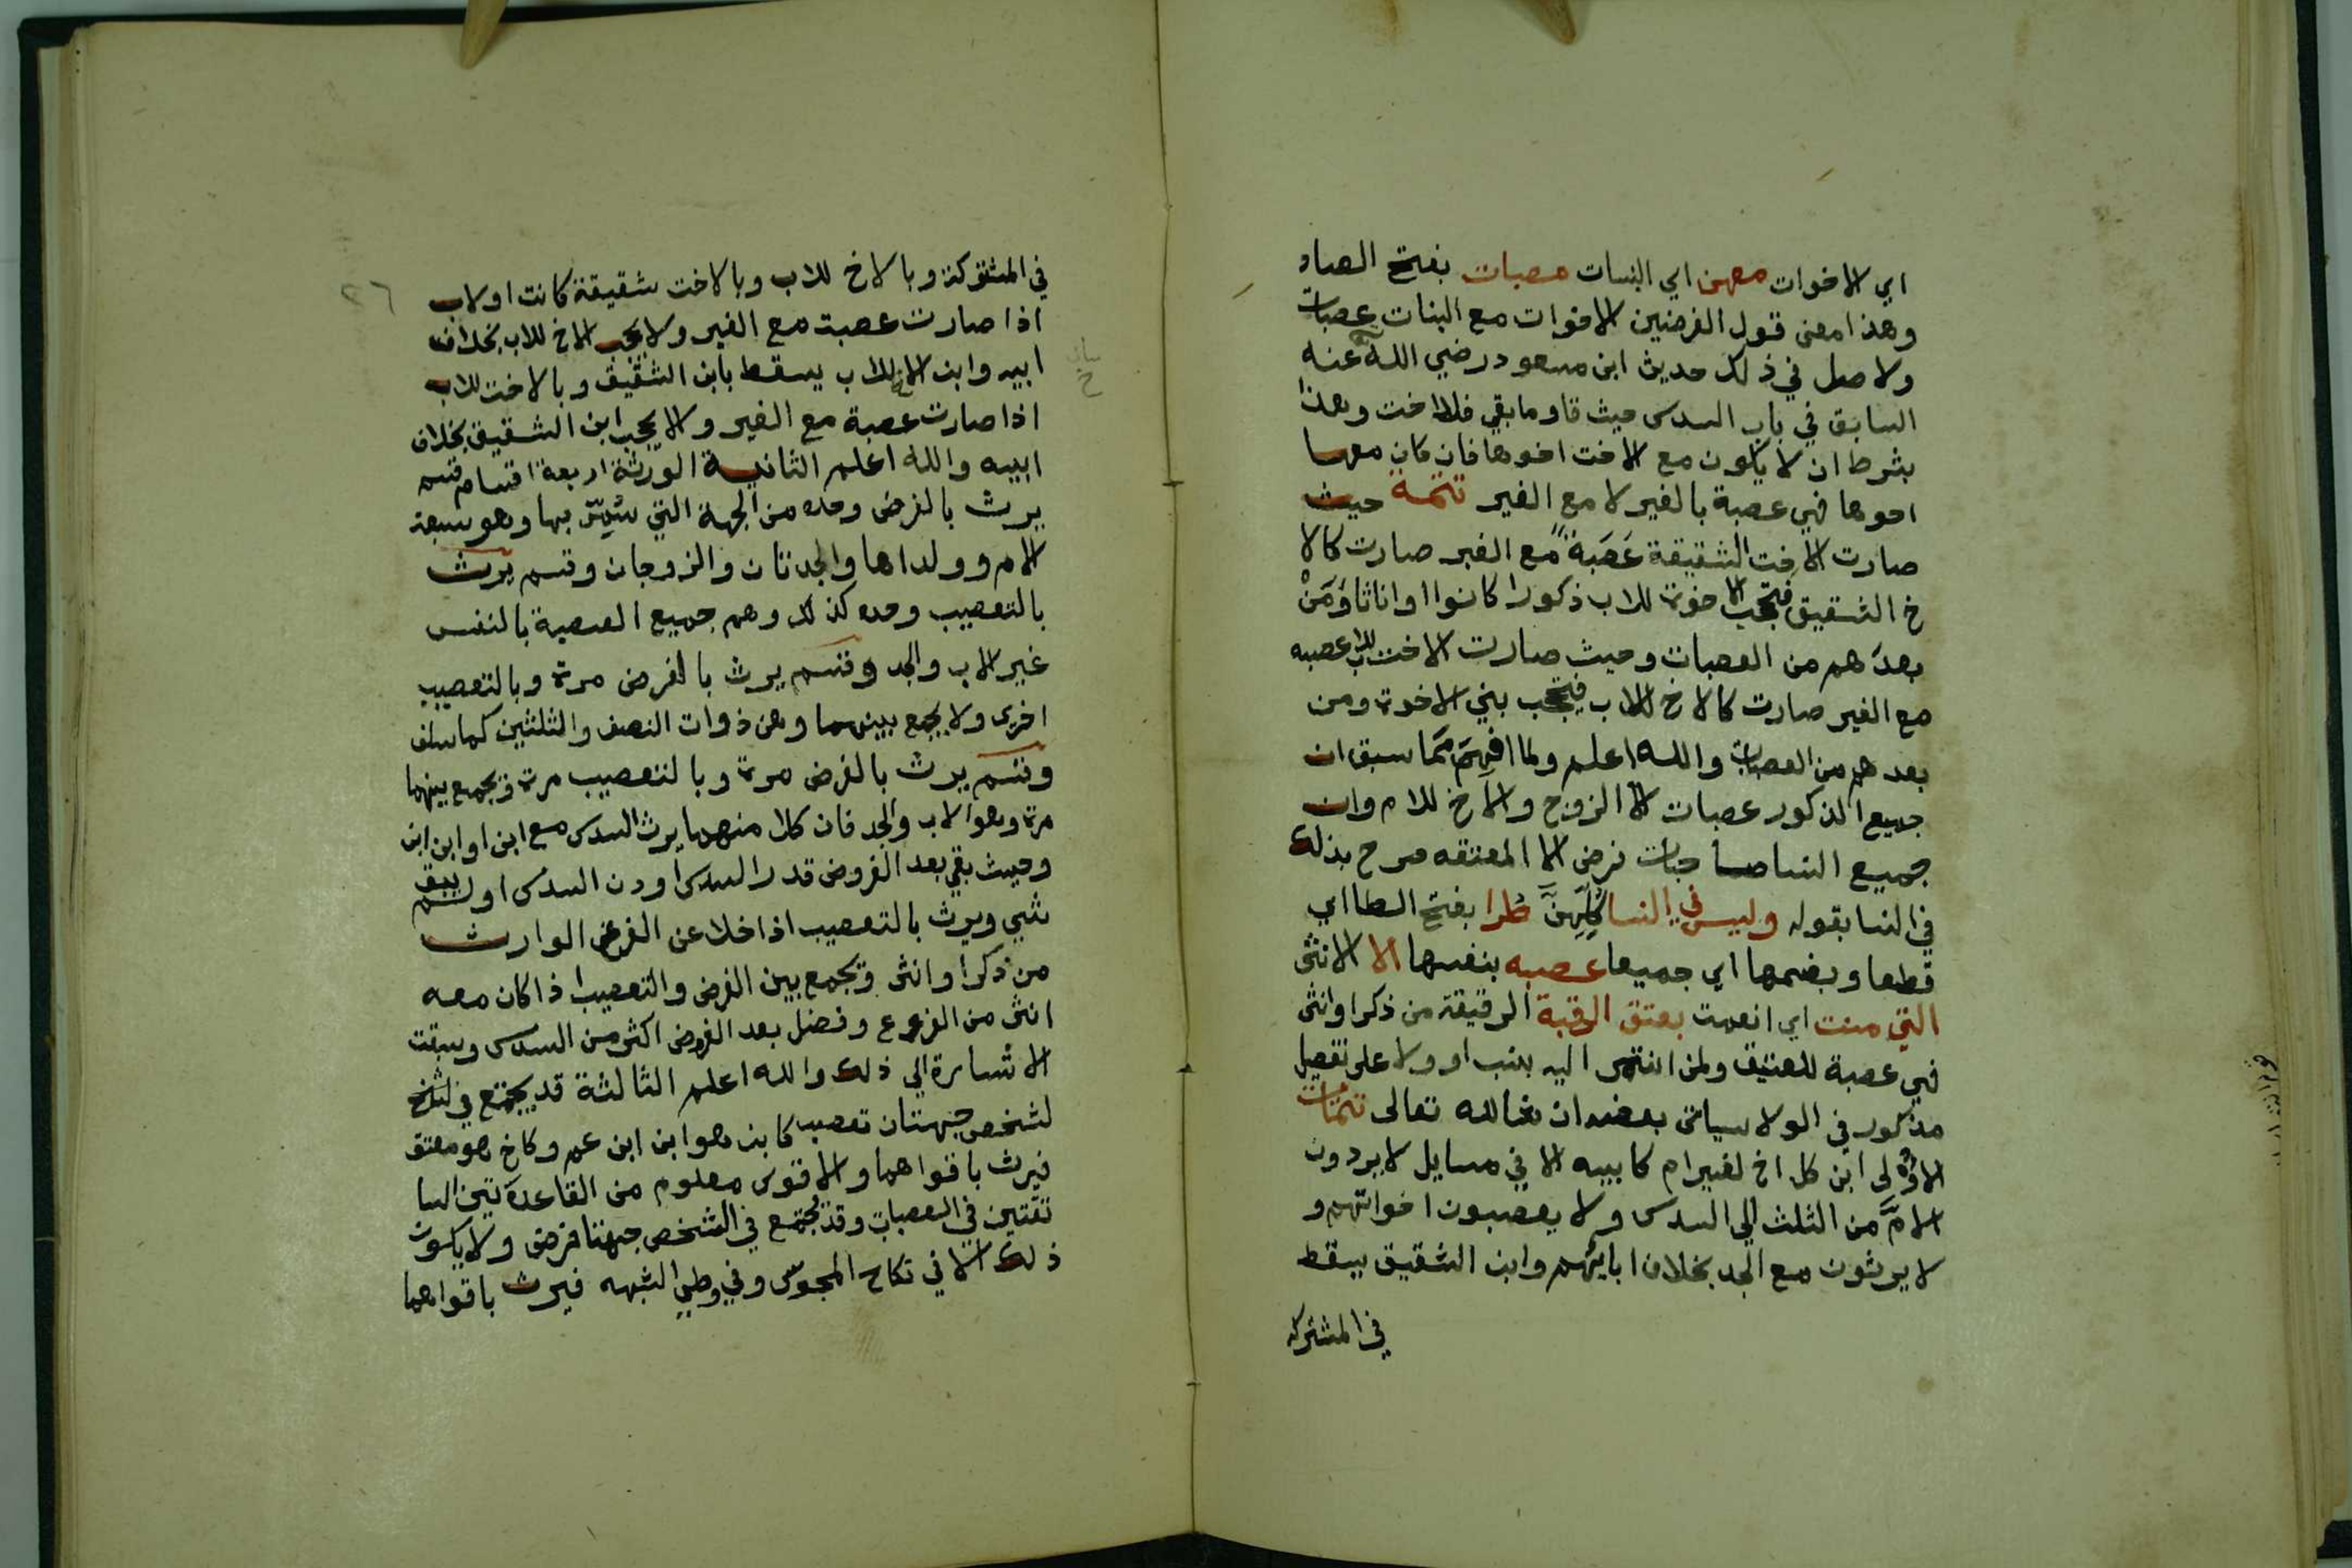 اي الاخوات معهن اي البنات عصبات بفتح الصاد
وهذا معنى قول الفرضيين الاخوات مع البنات عصبات
ولاصل في ذلك حديث ابن مسعود رضي الله عنه
السابق في باب السدس حيث قا وما بقي فللاخت وهذا
بشرط ان لا يكون مع الاخت اخوها فان كان معها
اخوها فهي عصبة بالغير لا مع الغير تتمة حيث
صارت الاخت الشقيقة عَصَبةً مع الغير صارت كالا
خ الشقيق فتحجب الاخوة للاب ذكورا كانوا اواناثا وَمَنْ
بعدَهم من العصبات وحيث صارت الاخت للاب عصبه
مع الغير صارت كالاخ للاب فتحجب بني الاخوة ومن
بعدهم من العصبات والله اعلم ولما افهم مما سبق ان
جميع الذكور عصبات الا الزوج والاخ للام وان
جميع النسا صاحبات فرض الا المعتقه صرح بذلك
في النسا بقوله وليس في النسا كلهن طرا بفتح الطا اي
قطعا وبضمها اي جميعا عصبه بنفسها الا الانثى
التي منت اي انعمت بعتق الرقبة الرقيقة من ذكر اوانثى
فهي عصبة للعتيق ولمن انتمى اليه بنسب او ولا على تفصيل
مذكور في الولا سياتى بعضه ان شا الله تعالى تتمات
الاولى ابن كل اخ لغير ام كابيه الا في مسايل لا يردون
الامَّ من الثلث الي السدس ولا يعصبون اخواتهم و
لا يرثون مع الجد بخلاف ابايهم وابن الشقيق يسقط
في المشتركه
٢٦
في المشتركة وبالاخ للاب وبالاخت شقيقة كانت اولاب
اذا صارت عصبة مع الغير ولا يحجب الاخ للاب بخلاف
ابيه وابن الاخ للاب يسقط بابن الشقيق وبالاخت للاب
اذا صارت عصبة مع الغير ولا يحجب ابن الشقيق بخلاف
ابيه والله اعلم الثانية الورثة اربعة اقسام قسم
يرث بالفرض وحده من الجهة التي سُمِّيَ بها وهو سبعة
الام وولداها والجدتان والزوجان وقسم يرث
بالتعصيب وحده كذلك وهم جميع العصبة بالنفس
غير الاب والجد وقسم يرث بالفرض مرة وبالتعصيب
اخرى ولا يجمع بينهما وهن ذوات النصف والثلثين كما سلف
وقسم يرث بالفرض مرة وبالتعصيب مرة ويجمع بينهما
مرة وهو الاب والجد فان كلا منهما يرث السدس مع ابن او ابن ابن
وحيث بقي بعد الفروض قدر السدس او دن السدس او لم يبق
شي ويرث بالتعصيب اذا خلا عن الفرع الوارث
من ذكر او انثى ويجمع بين الفرض والتعصيب اذا كان معه
انثى من الفروع وفضل بعد الفروض اكثر من السدس وسبقت
الاشارة الي ذلك والله اعلم الثالثة قد يجتمع في
لشخص جهتان تعصيب كابن هو ابن ابن عم وكاخ هو معتق
فيرث باقواهما والاقوى معلوم من القاعدتين السا
بقتين في العصبات وقد يجتمع في الشخص جهتا فرض ولا يكون
ذلك الا في نكاح المجوس وفي وطي الشبهه فيرث باقواهما